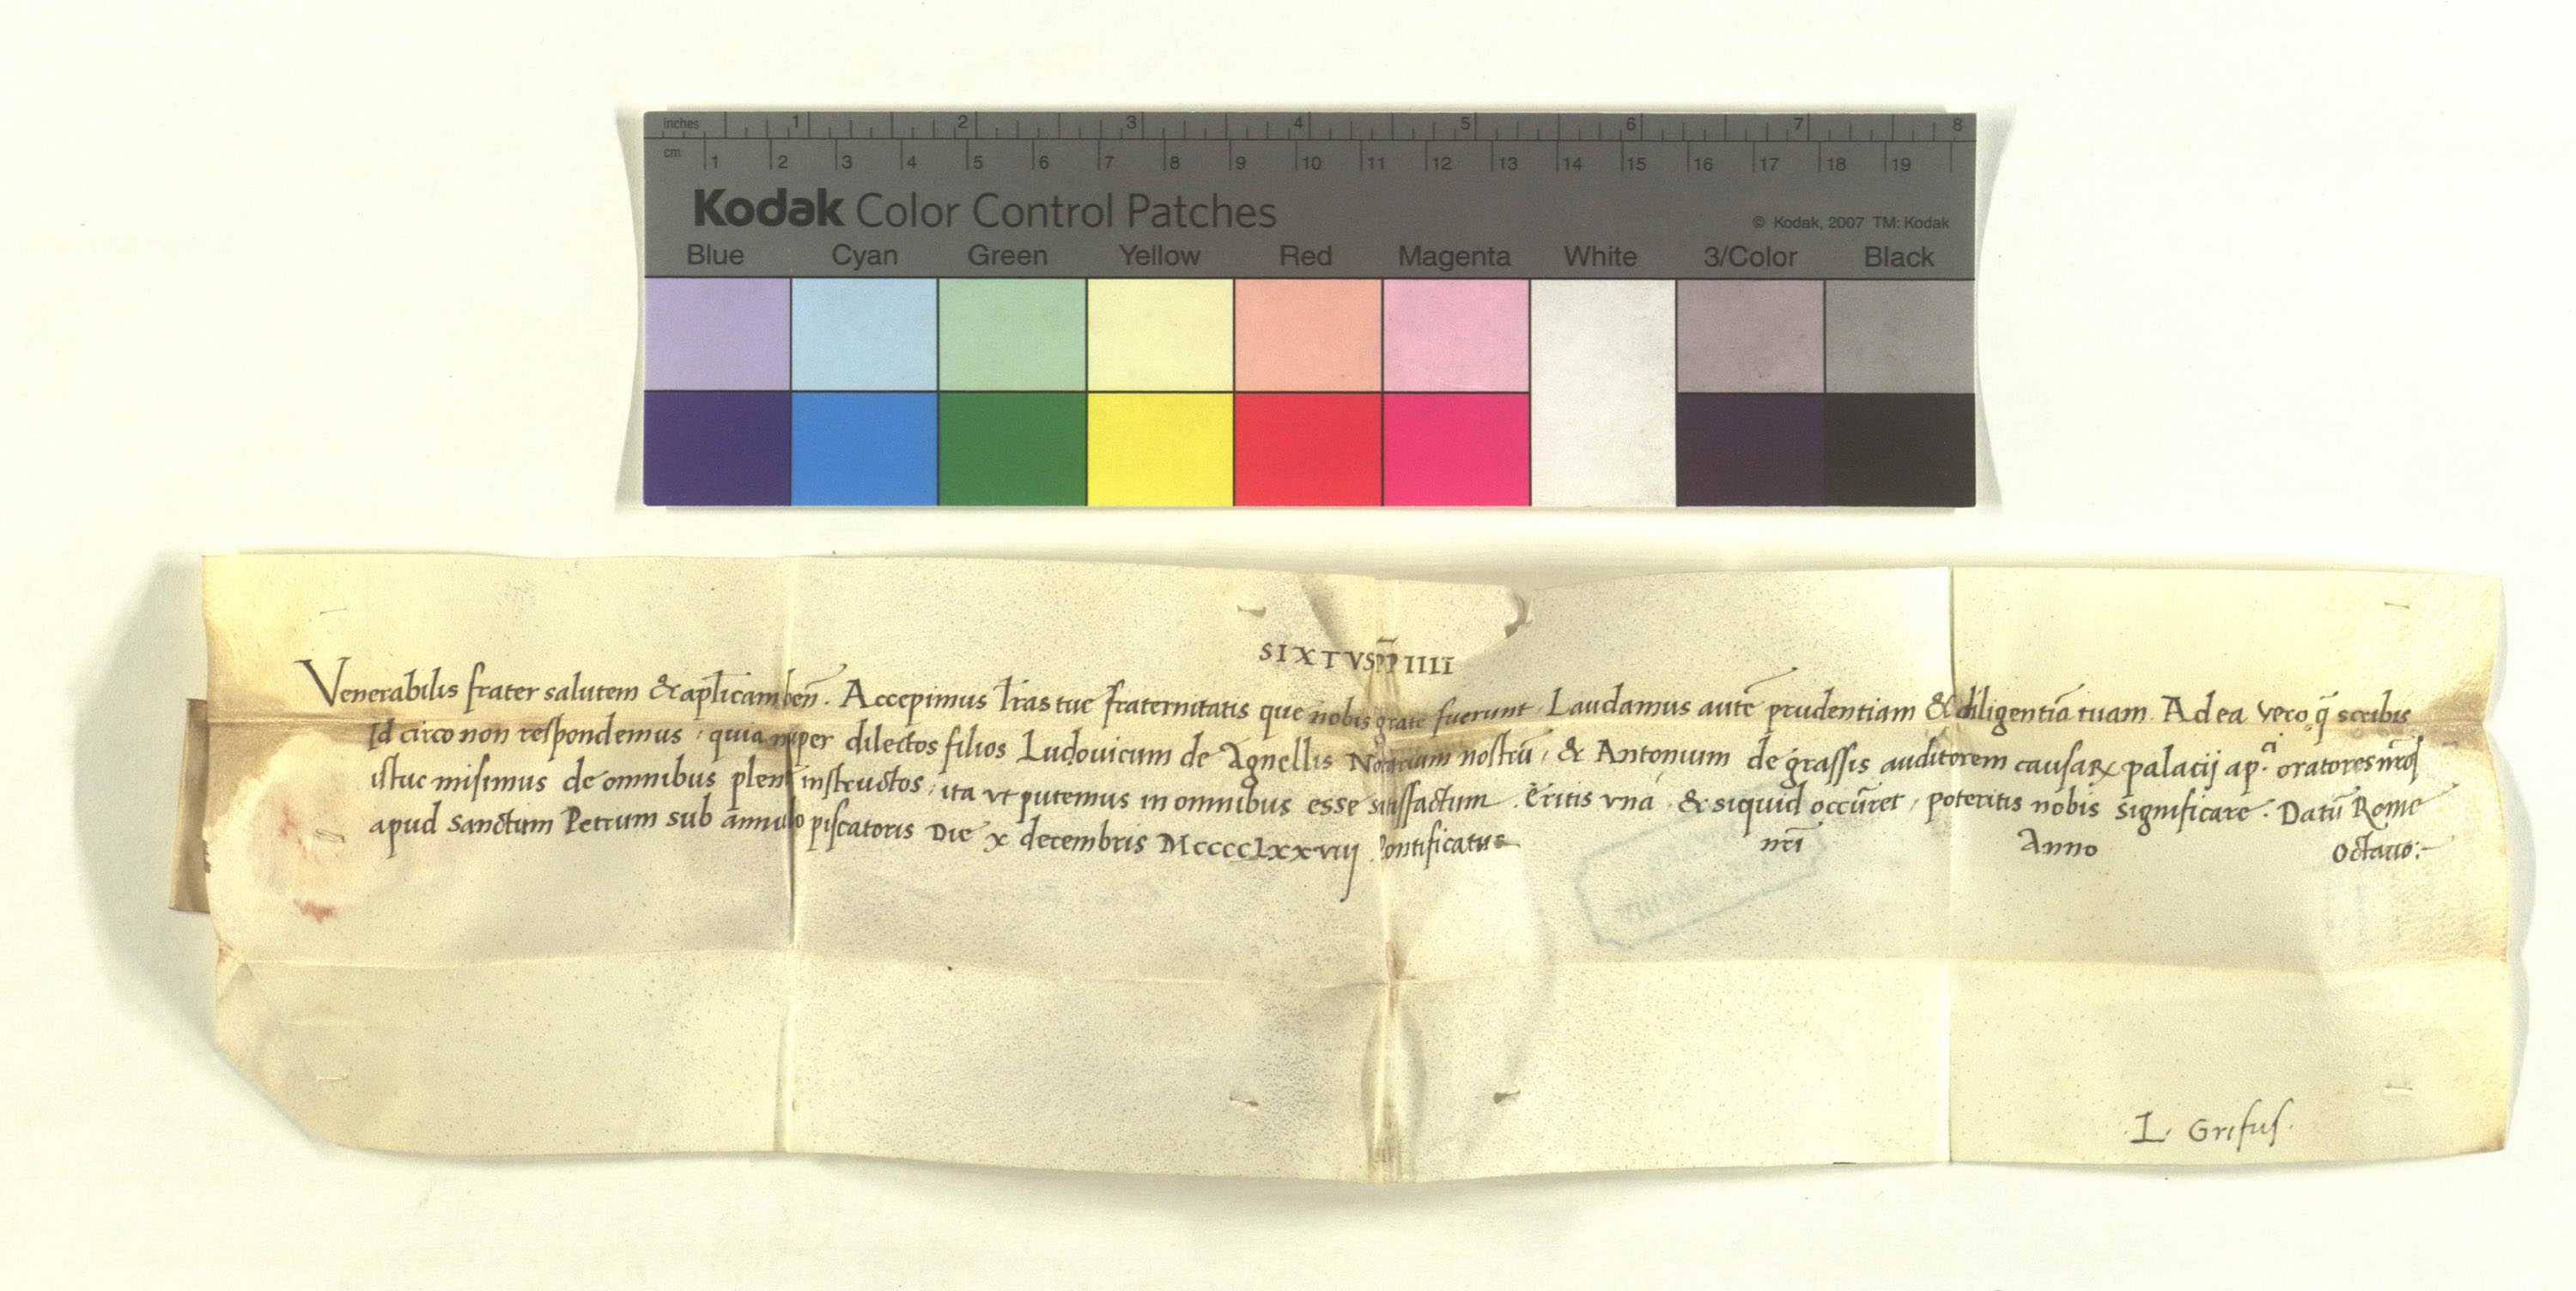 inches 1 2 3 4 5 6 7 8
cm 1 2 3 4 5 6 7 8 9 10 11 12 13 14 15 16 17 18 19
Kodak Color Control Patches
© Kodak, 2007 TM: Kodak
Blue Cyan Green Yellow Red Magenta White 3/Color Black
SIXTVS PP̄ IIII
Venerabilis frater salutem & aplicam ben̄. Accepimus l̄ras tue fraternitatis que nobis grate fuerunt. Laudamus autē prudentiam & diligentiā tuam. Ad ea vero q̄ scribis
Id circo non respondemus, quia nuper dilectos filios Ludouicum de Agnellis Notarium nostrū, & Antonium de grassis auditorem causaꝝ palacij ap.ci oratores nr̄os
istuc misimus de omnibus plene instructos, ita vt putemus in omnibus esse satisfactum. Eritis vna & siquid occūret, poteritis nobis significare. Datū Rome
apud Sanctum Petrum sub annulo piscatoris Die x decembris MCCCCLxxviij Pontificatus nr̄i Anno Octauo:-
L. Grifus.